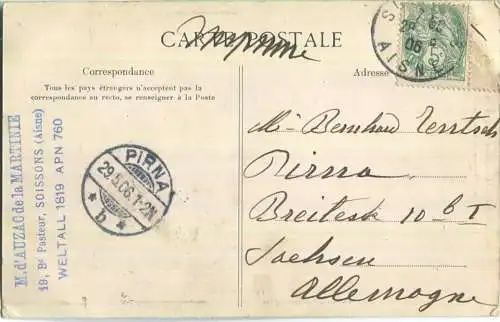 CARTE POSTALE
Imprimé
Correspondance
Tous les pays étrangers n'acceptent pas la
correspondance au recto, se renseigner à la Poste
Adresse
AISNE
M. d'AUZAC de la MARTINIE
19, Bd Pasteur, SOISSONS (Aisne)
WELTALL 1819 APN 760
PIRNA
29.5.06.1-2N
* b *
Bernhard
Pirna
Breitestr 10 b I
Sachsen
Allemagne